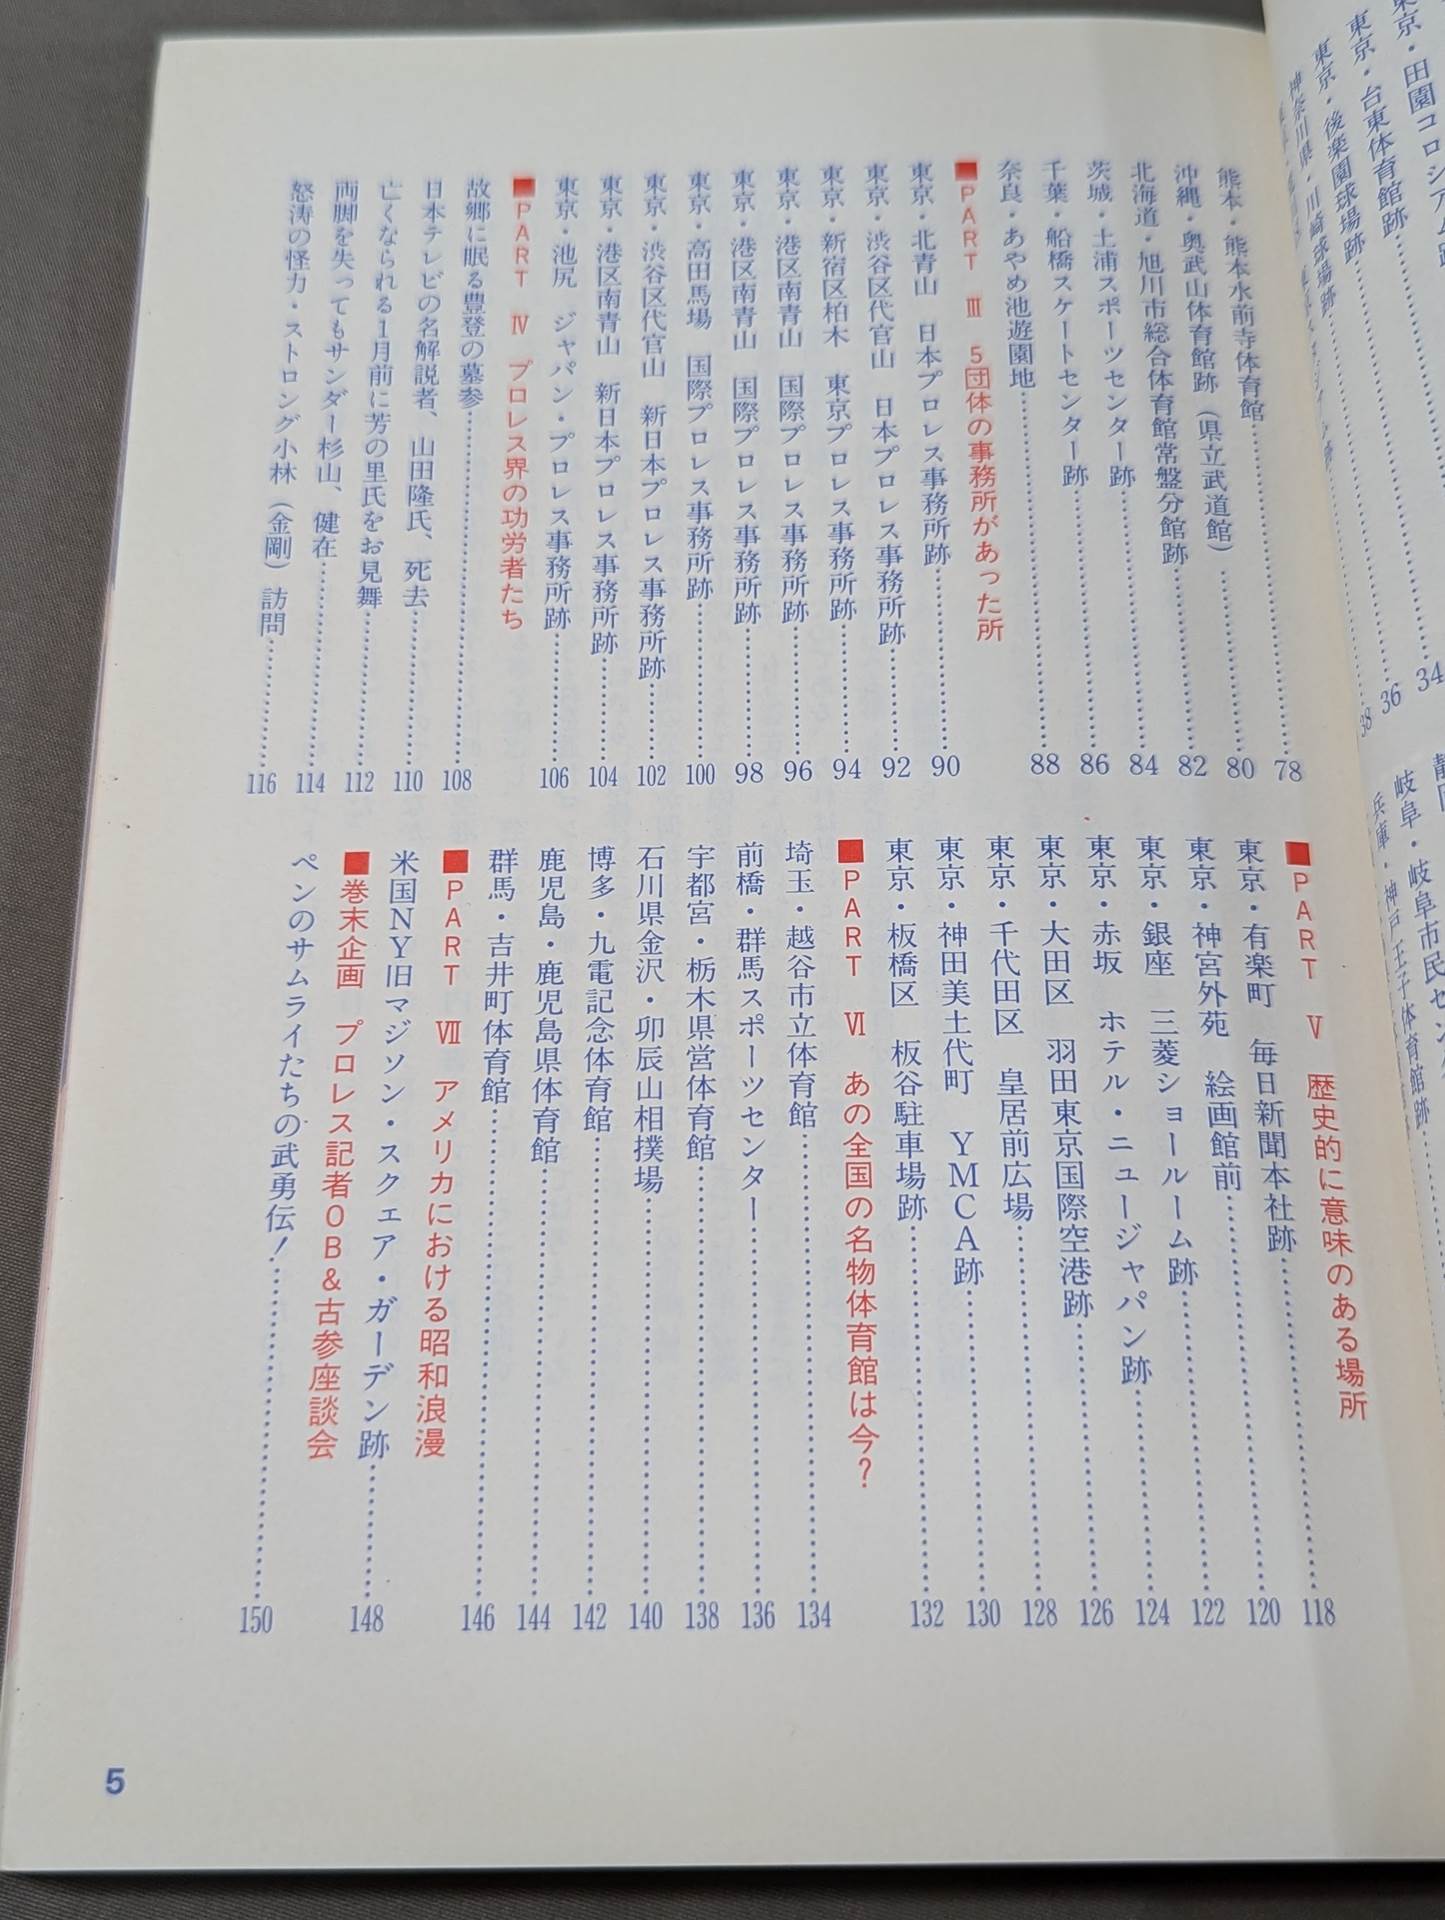 東京・台東体育館跡
36
東京・後楽園球場跡
38
34
熊本・熊本水前寺体育館……78
沖縄・奥武山体育館跡（県立武道館）……80
北海道・旭川市総合体育館常盤分館跡……82
茨城・土浦スポーツセンター跡……84
千葉・船橋スケートセンター跡……86
奈良・あやめ池遊園地……88
■PART Ⅲ 5団体の事務所があった所
東京・北青山 日本プロレス事務所跡……90
東京・渋谷区代官山 日本プロレス事務所跡……92
東京・新宿区柏木 東京プロレス事務所跡……94
東京・港区南青山 国際プロレス事務所跡……96
東京・港区南青山 国際プロレス事務所跡……98
東京・高田馬場 国際プロレス事務所跡……100
東京・渋谷区代官山 新日本プロレス事務所跡……102
東京・港区南青山 新日本プロレス事務所跡……104
東京・池尻 ジャパン・プロレス事務所跡……106
■PART Ⅳ プロレス界の功労者たち
故郷に眠る豊登の墓参……108
日本テレビの名解説者、山田隆氏、死去……110
亡くなられる1月前に芳の里氏をお見舞……112
両脚を失ってもサンダー杉山、健在……114
怒涛の怪力・ストロング小林（金剛）訪問……116
■PART Ⅴ 歴史的に意味のある場所
東京・有楽町 毎日新聞本社跡……118
東京・神宮外苑 絵画館前……120
東京・銀座 三菱ショールーム跡……122
東京・赤坂 ホテル・ニュージャパン跡……124
東京・大田区 羽田東京国際空港跡……126
東京・千代田区 皇居前広場……128
東京・神田美土代町 YMCA跡……130
東京・板橋区 板谷駐車場跡……132
■PART Ⅵ あの全国の名物体育館は今?
埼玉・越谷市立体育館……134
前橋・群馬スポーツセンター……136
宇都宮・栃木県営体育館……138
石川県金沢・卯辰山相撲場……140
博多・九電記念体育館……142
鹿児島・鹿児島県体育館……144
群馬・吉井町体育館……146
■PART Ⅶ アメリカにおける昭和浪漫
米国NY旧マジソン・スクェア・ガーデン跡……148
■巻末企画 プロレス記者OB&古参座談会
ペンのサムライたちの武勇伝!……150
5